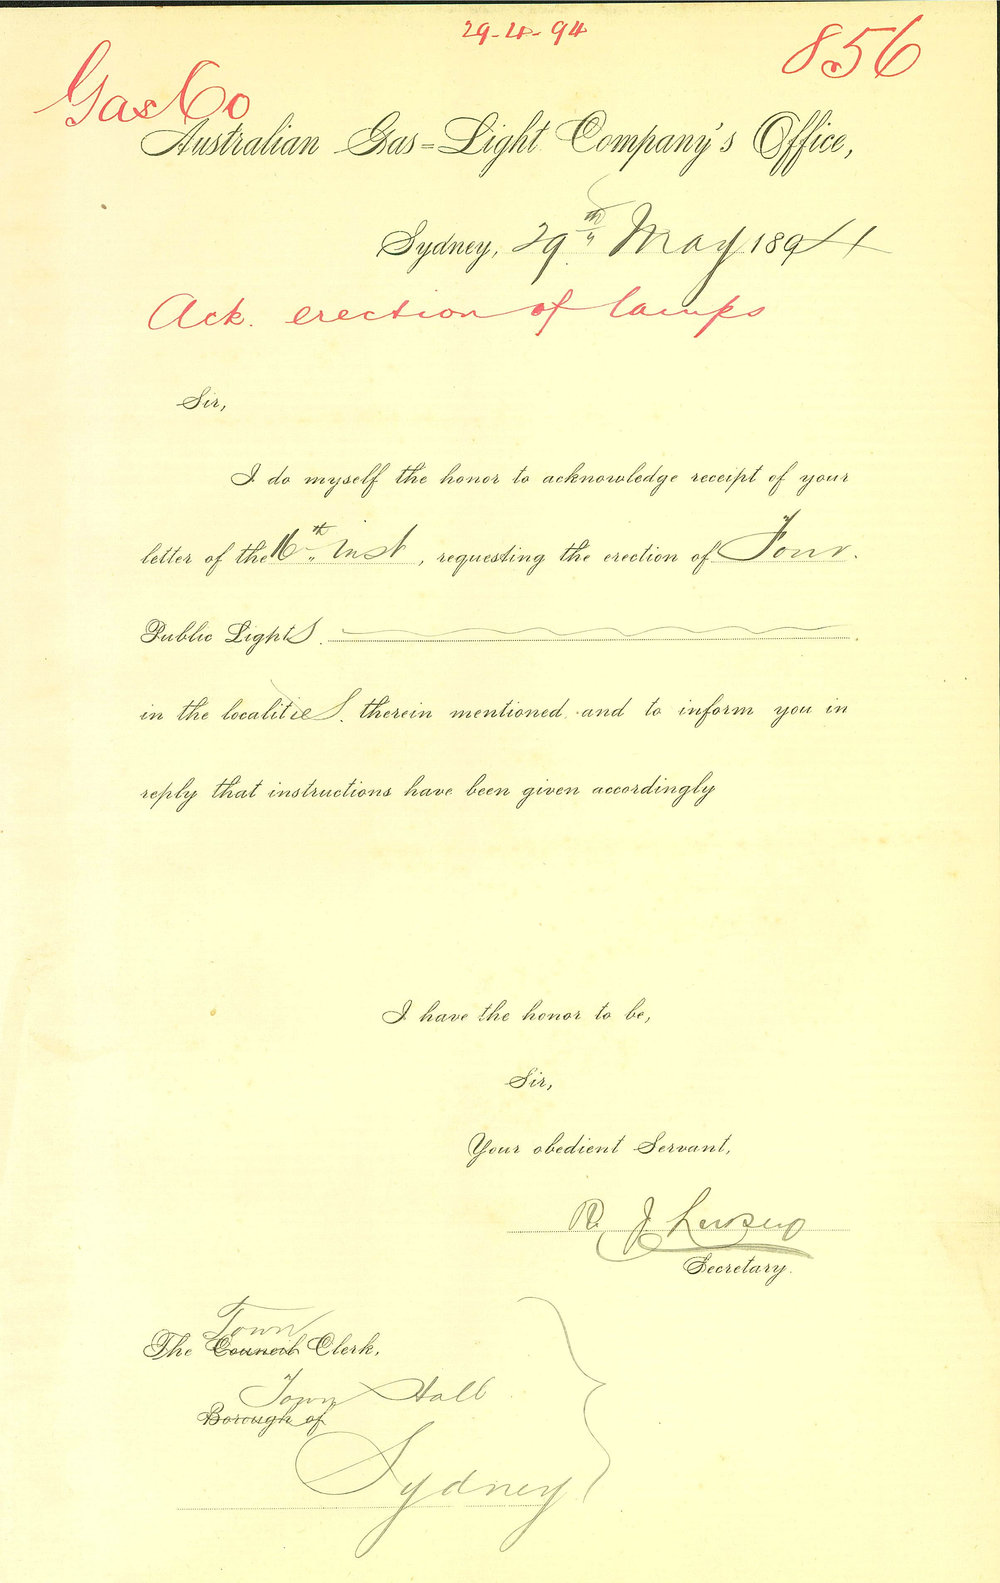 29-4-94
856
Gas Co
Australian Gas=Light Company's Office,
Sydney, 29th May 1894
Ack. erection of lamps
Sir,
I do myself the honor to acknowledge receipt of your
letter of the 16th Inst, requesting the erection of Four.
Public Lights.
in the localities. therein mentioned and to inform you in
reply that instructions have been given accordingly
I have the honor to be,
Sir,
Your obedient Servant,
R. J.
Secretary.
Town
The Council Clerk,
Town Hall
Borough of
Sydney